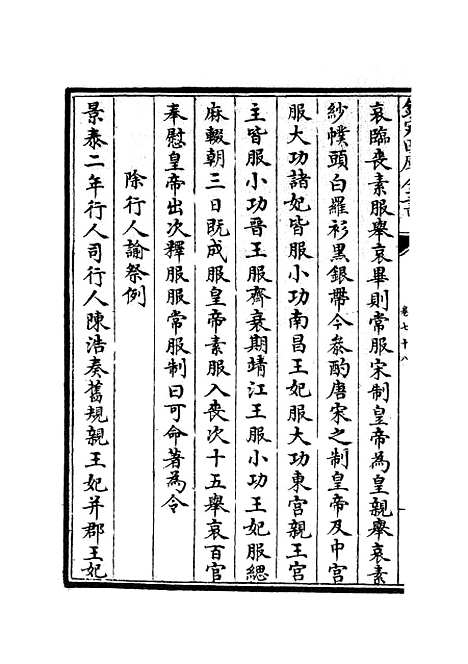 欽定四庫全書
卷七十八
哀臨喪素服舉哀畢則常服宋制皇帝為皇親舉哀素
紗幞頭白羅衫黑銀帶今參酌唐宋之制皇帝及中宮
服大功諸妃皆服小功南昌王妃服大功東宮親王宮
主皆服小功晉王服齊衰期靖江王服小功王妃服緦
麻輟朝三日既成服皇帝素服入喪次十五舉哀百官
奉慰皇帝出次釋服服常服制曰可命著為令
除行人諭祭例
景泰二年行人司行人陳浩奏舊規親王妃并郡王妃